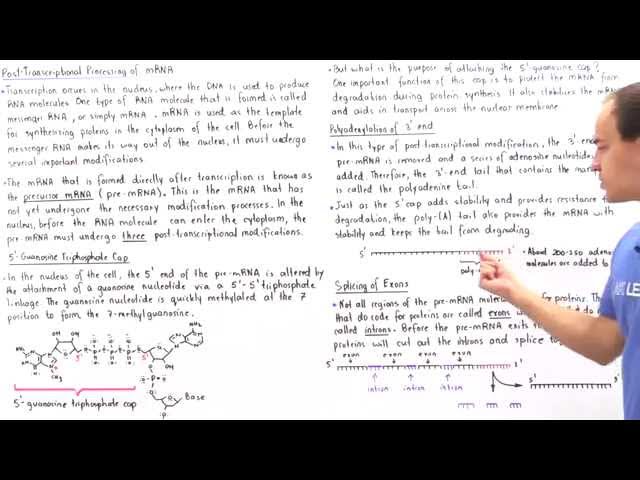 Post-Transcriptional Processing of mRNA
• Transcription occurs in the nucleus, where the DNA is used to produce
RNA molecules. One type of RNA molecule that is formed is called
messenger RNA, or simply mRNA. mRNA is used as the template
for synthesizing proteins in the cytoplasm of the cell. Before the
messenger RNA makes its way out of the nucleus, it must undergo
several important modifications.
• The mRNA that is formed directly after transcription is known as
the precursor mRNA (pre-mRNA). This is the mRNA that has
not yet undergone the necessary modification processes. In the
nucleus, before the RNA molecule can enter the cytoplasm, the
pre-mRNA must undergo three post-transcriptional modifications.
5'-Guanosine Triphosphate Cap
• In the nucleus of the cell, the 5' end of the pre-mRNA is altered by
the attachment of a guanosine nucleotide via a 5'-5' triphosphate
linkage. The guanosine nucleotide is quickly methylated at the 7
position to form the 7-methylguanosine.
OH OH
NH₂
5'
5'
CH₃
OH
Base
5'-guanosine triphosphate cap
• But what is the purpose of attaching the 5'-guanosine cap?
One important function of this cap is to protect the mRNA from
degradation during protein synthesis. It also stabilizes the mRNA
and aids in transport across the nuclear membrane.
Polyadenylation of 3' end
• In this type of post transcriptional modification, the 3'-end
pre-mRNA is removed and a series of adenosine nucleotides
added. Therefore, the 3'-end tail that contains the
is called the polyadenine tail.
• Just as the 5' cap adds stability and provides resistance
degradation, the poly-(A) tail also provides the mRNA with
stability and keeps the tail from degrading.
5' 3'
• About 200-250
molecules are added to
Splicing of Exons
• Not all regions of the pre-mRNA for proteins.
that do code for proteins are called exons
called introns. Before the pre-mRNA exits
proteins will cut out the introns and splice
exon exon exon exon
5' 3' 5'
intron intron intron